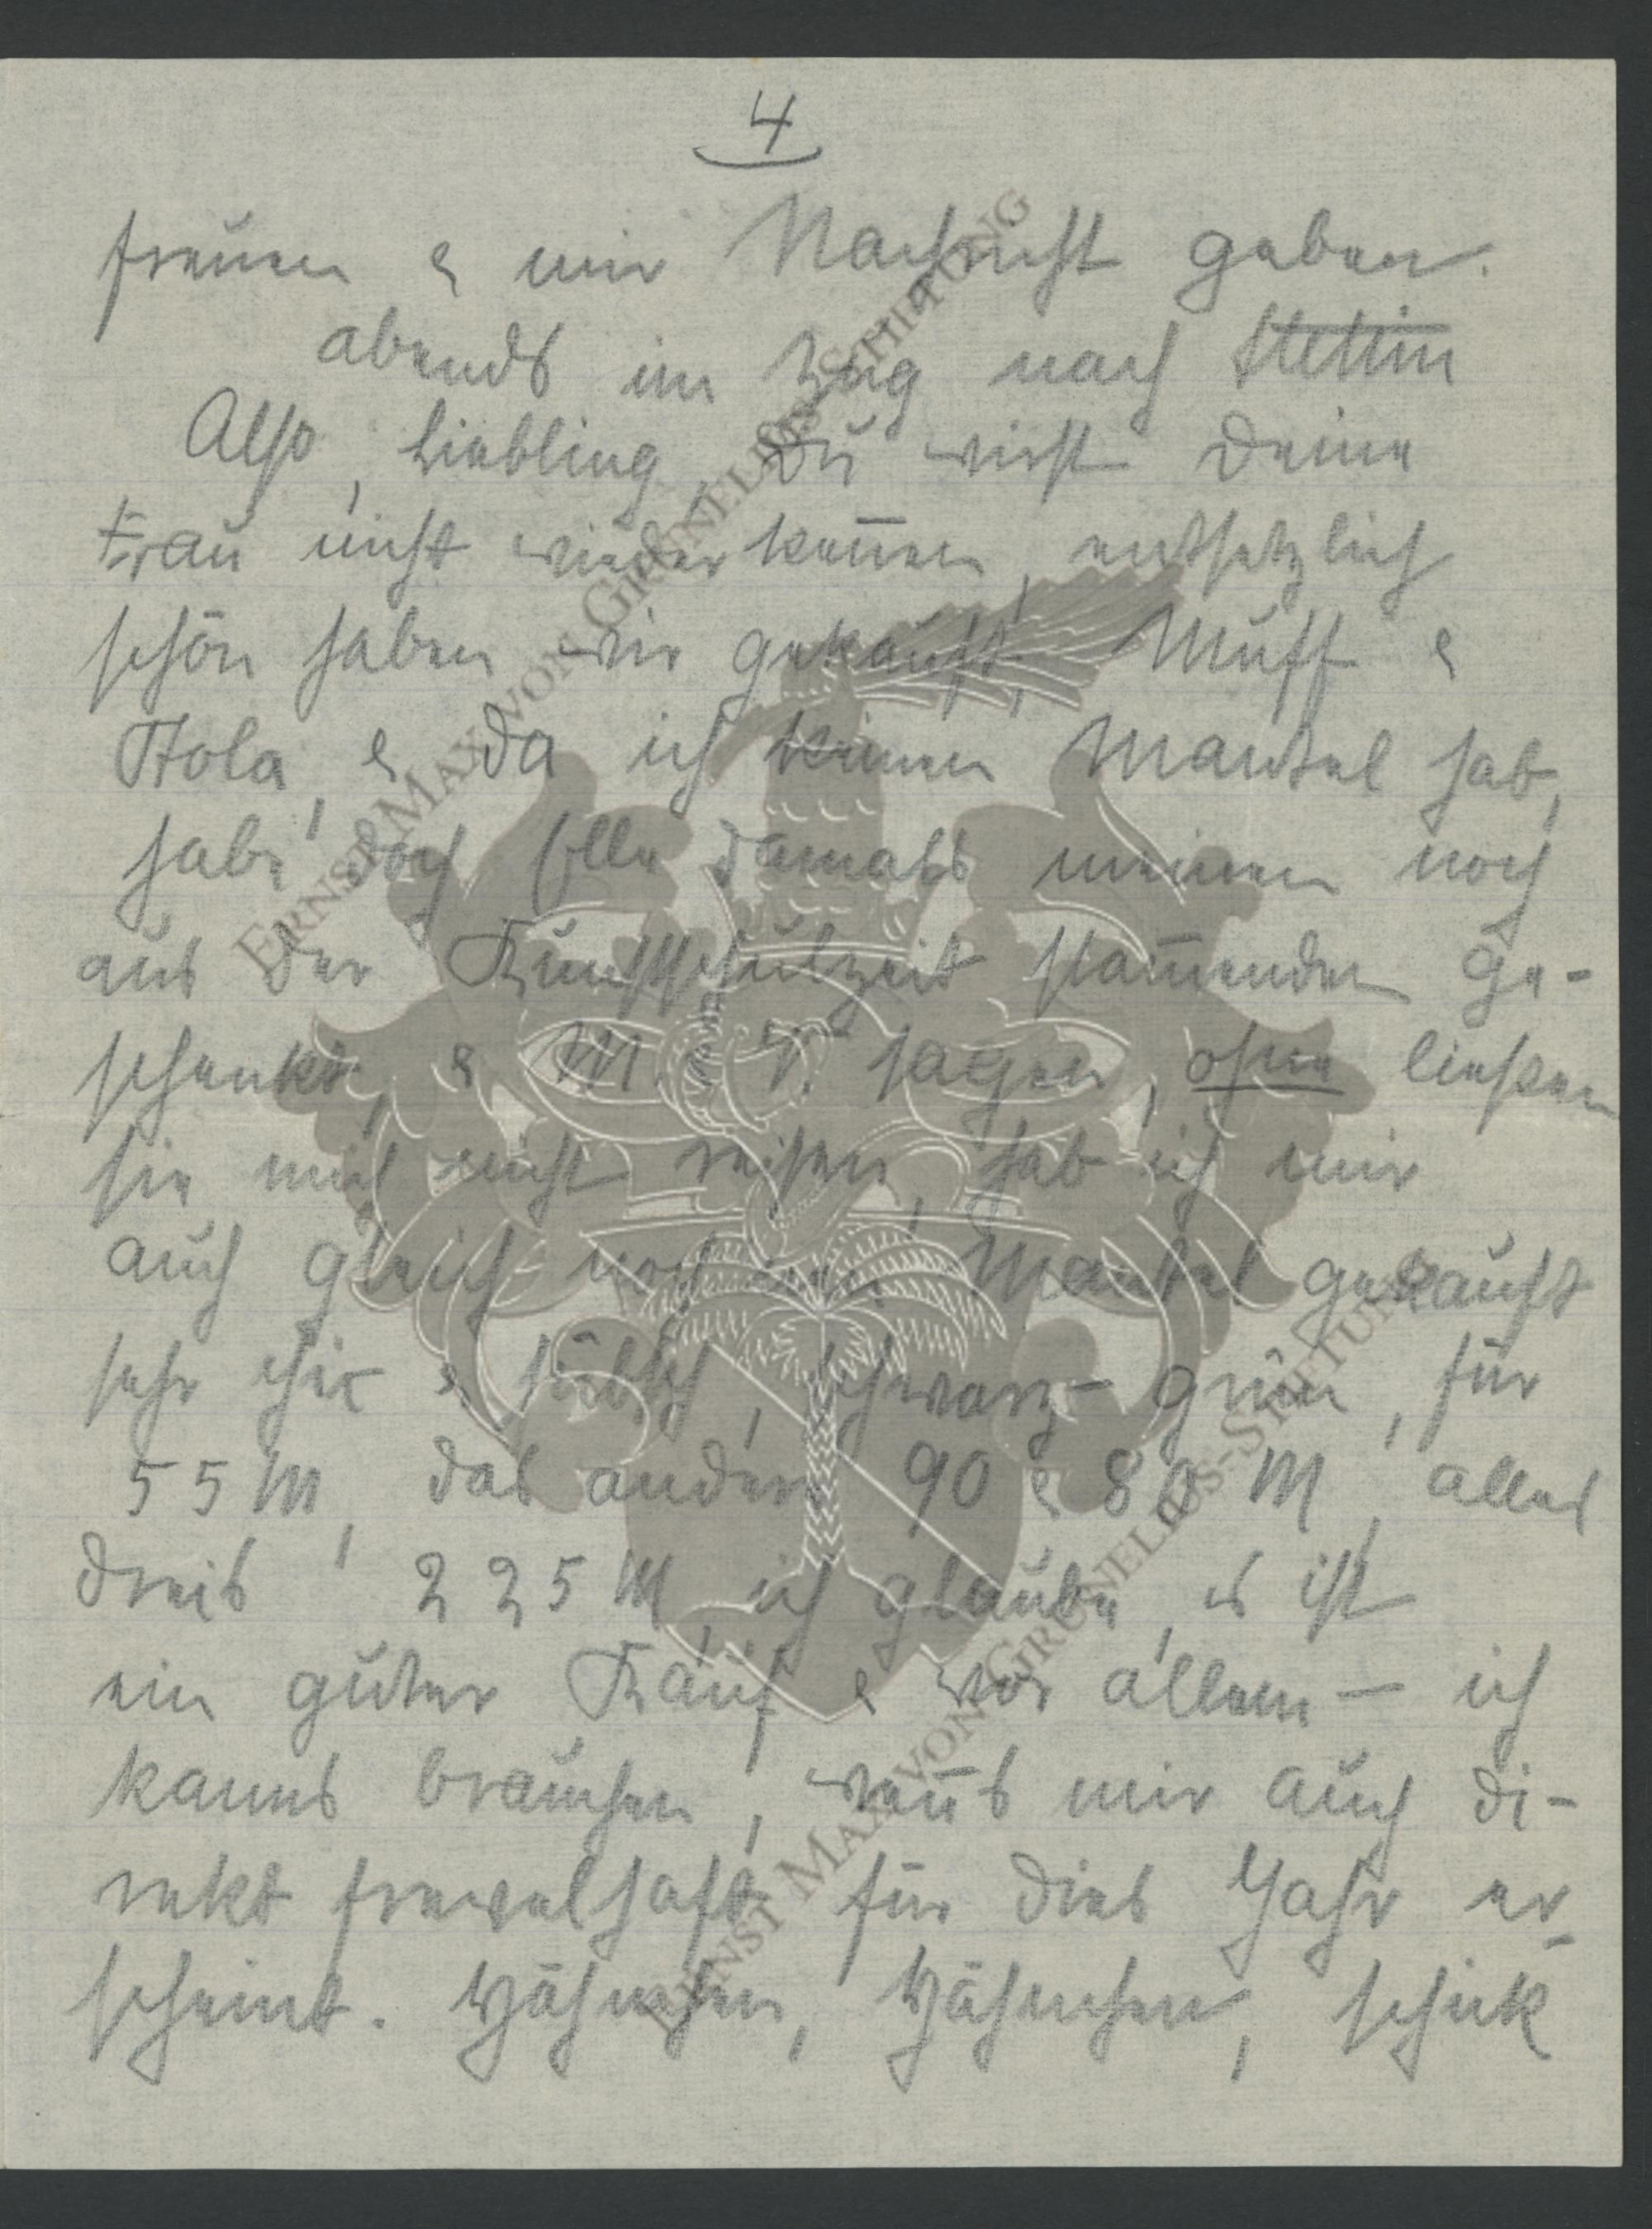 4
freuen & mir Nachricht geben.
abends im Zug nach Stettin
Also, Liebling, Du wirst Deine
Frau nicht wieder keñen, entsetzlich
schön haben wir gekauft, Muff &
Stola, & da ich keinen Mantel hab,
habe doch Elle damals meinen noch
aus der Kunstschulzeit stam̄enden ge-
schenkt, & M. & V. sagen, ohne ließen
sie mich nicht reisen, hab ich mir
auch gleich noch einen Mantel gekauft
sehr chic & hübsch, schwarz-grün, für
55 M, das andere 90 & 80 M, alles
dreis, 225 M, ich glaube, es ist
ein guter Kauf & vor allem – ich
kanns brauchen, weñs mir auch di-
rekt frevelhaft für dies Jahr er-
scheint. Hähnchen, Hähnchen, schick
ERNST MAX VON GRUNELIUS-STIFTUNG
ERNST MAX VON GRUNELIUS-STIFTUNG